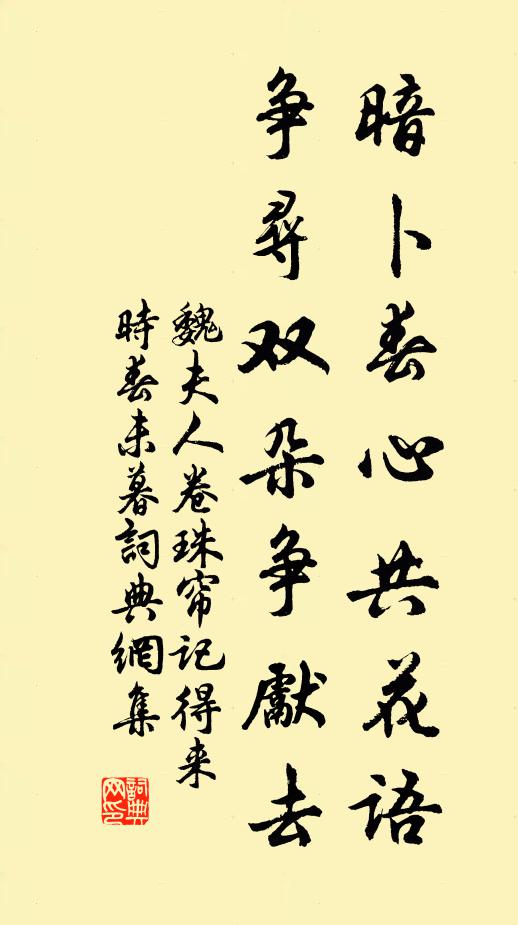 暗卜春心共花語
争尋双朵争獻去
魏夫人卷珠帘记得来
時春未暮詞典網集
詞典
网印